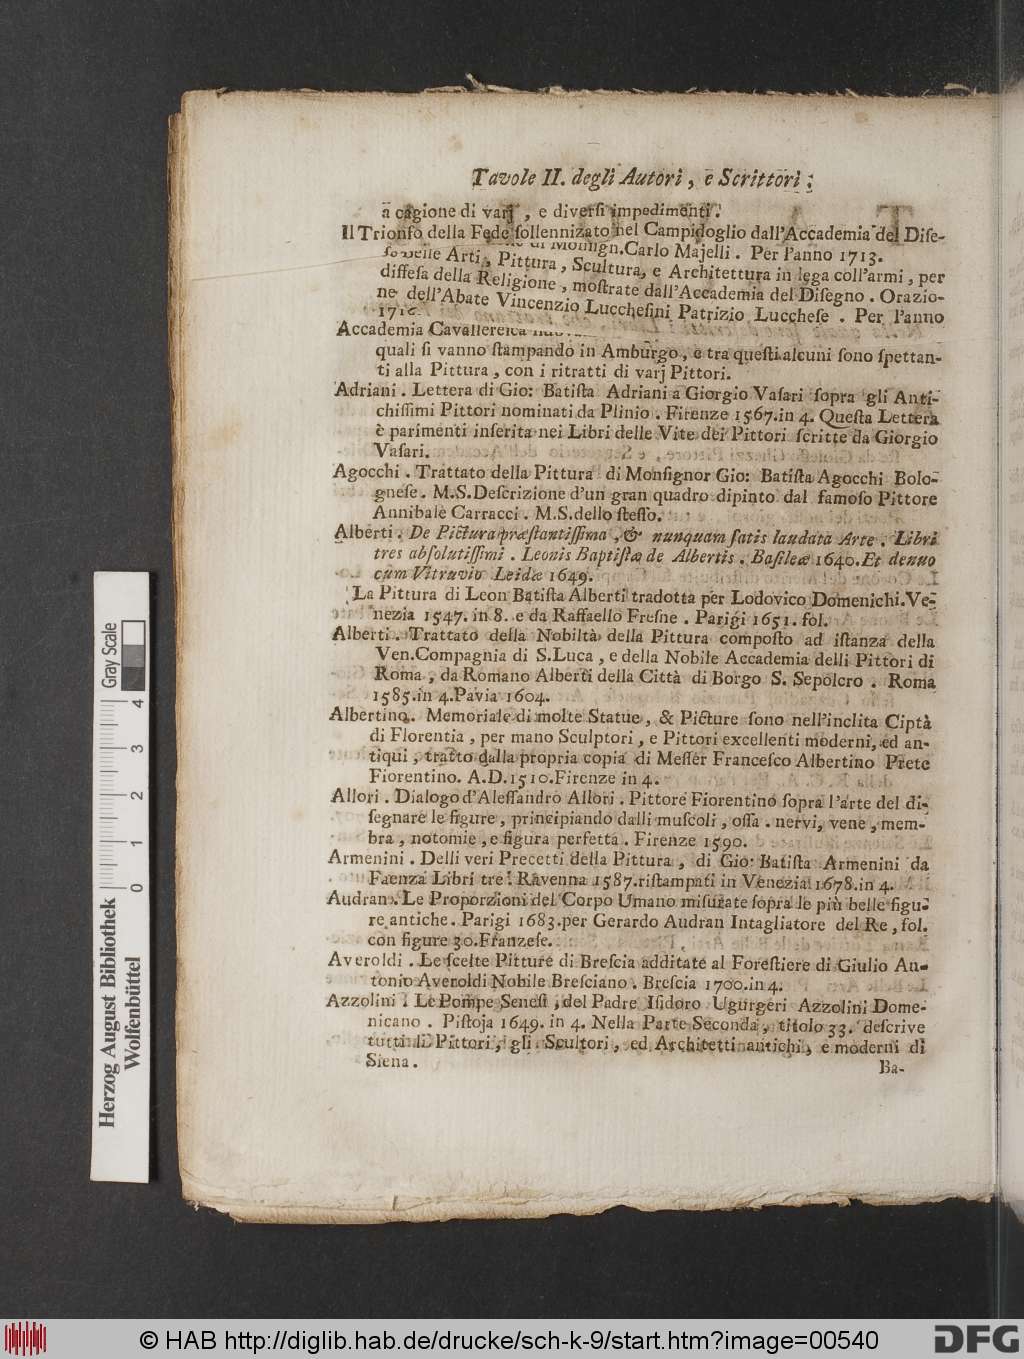 Tavole II. degli Autori, e Scrittori;
a cagione di varj, e diversi impedimenti.
Il Trionfo della Fede sollennizato nel Campidoglio dall'Accademia del Dise-
Carlo Majelli. Per l'anno 1713.
Arti, Pittura, Scultura, e Architettura in lega coll'armi, per
diffesa della Religione, mostrate dall'Accademia del Disegno. Orazio-
ne dell'Abate Vincenzio Lucchesini Patrizio Lucchese. Per l'anno
1716.
Accademia
quali si vanno stampando in Amburgo, e tra questi alcuni sono spettan-
ti alla Pittura, con i ritratti di varj Pittori.
Adriani. Lettera di Gio: Batista Adriani a Giorgio Vasari sopra gli Anti-
chissimi Pittori nominati da Plinio. Firenze 1567.in 4. Questa Lettera
è parimenti inserita nei Libri delle Vite dei Pittori scritte da Giorgio
Vasari.
Agocchi. Trattato della Pittura di Monsignor Gio: Batista Agocchi Bolo-
gnese. M.S.Descrizione d'un gran quadro dipinto dal famoso Pittore
Annibale Carracci. M.S.dello stesso.
Alberti. De Pictura præstantissima, & nunquam satis laudata Arte. Libri
tres absolutissimi. Leonis Baptistæ de Albertis. Basileæ 1640.Et denuo
cum Vitruvio Leidæ 1649.
La Pittura di Leon Batista Alberti tradotta per Lodovico Domenichi.Ve-
nezia 1547. in 8. e da Raffaello Fresne. Parigi 1651. fol.
Alberti. Trattato della Nobiltà della Pittura composto ad istanza della
Ven.Compagnia di S.Luca, e della Nobile Accademia delli Pittori di
Roma, da Romano Alberti della Città di Borgo S. Sepolcro. Roma
1585.in 4.Pavia 1604.
Albertino. Memoriale di molte Statue, & Picture sono nell'inclita Ciptà
di Florentia, per mano Sculptori, e Pittori excellenti moderni, ed an-
tiqui, tratto dalla propria copia di Messer Francesco Albertino Prete
Fiorentino. A.D.1510.Firenze in 4.
Allori. Dialogo d'Alessandro Allori. Pittore Fiorentino sopra l'arte del di-
segnare le figure, principiando dalli muscoli, ossa. nervi, vene, mem-
bra, notomie, e figura perfetta. Firenze 1590.
Armenini. Delli veri Precetti della Pittura, di Gio: Batista Armenini da
Faenza Libri tre. Ravenna 1587.ristampati in Venezia 1678.in 4.
Audran. Le Proporzioni del Corpo Umano misurate sopra le più belle figu-
re antiche. Parigi 1683.per Gerardo Audran Intagliatore del Re, fol.
con figure 30.Franzese.
Averoldi. Le scelte Pitture di Brescia additate al Forestiere di Giulio An-
tonio Averoldi Nobile Bresciano. Brescia 1700.in 4.
Azzolini. Le Pompe Senesi, del Padre Isidoro Ugurgeri Azzolini Dome-
nicano. Pistoja 1649. in 4. Nella Parte Seconda, titolo 33. descrive
tutti li Pittori, gli Scultori, ed Architetti antichi, e moderni di
Siena.
Ba-
Gray Scale
0 1 2 3 4
Herzog August Bibliothek
Wolfenbüttel
© HAB http://diglib.hab.de/drucke/sch-k-9/start.htm?image=00540
DFG